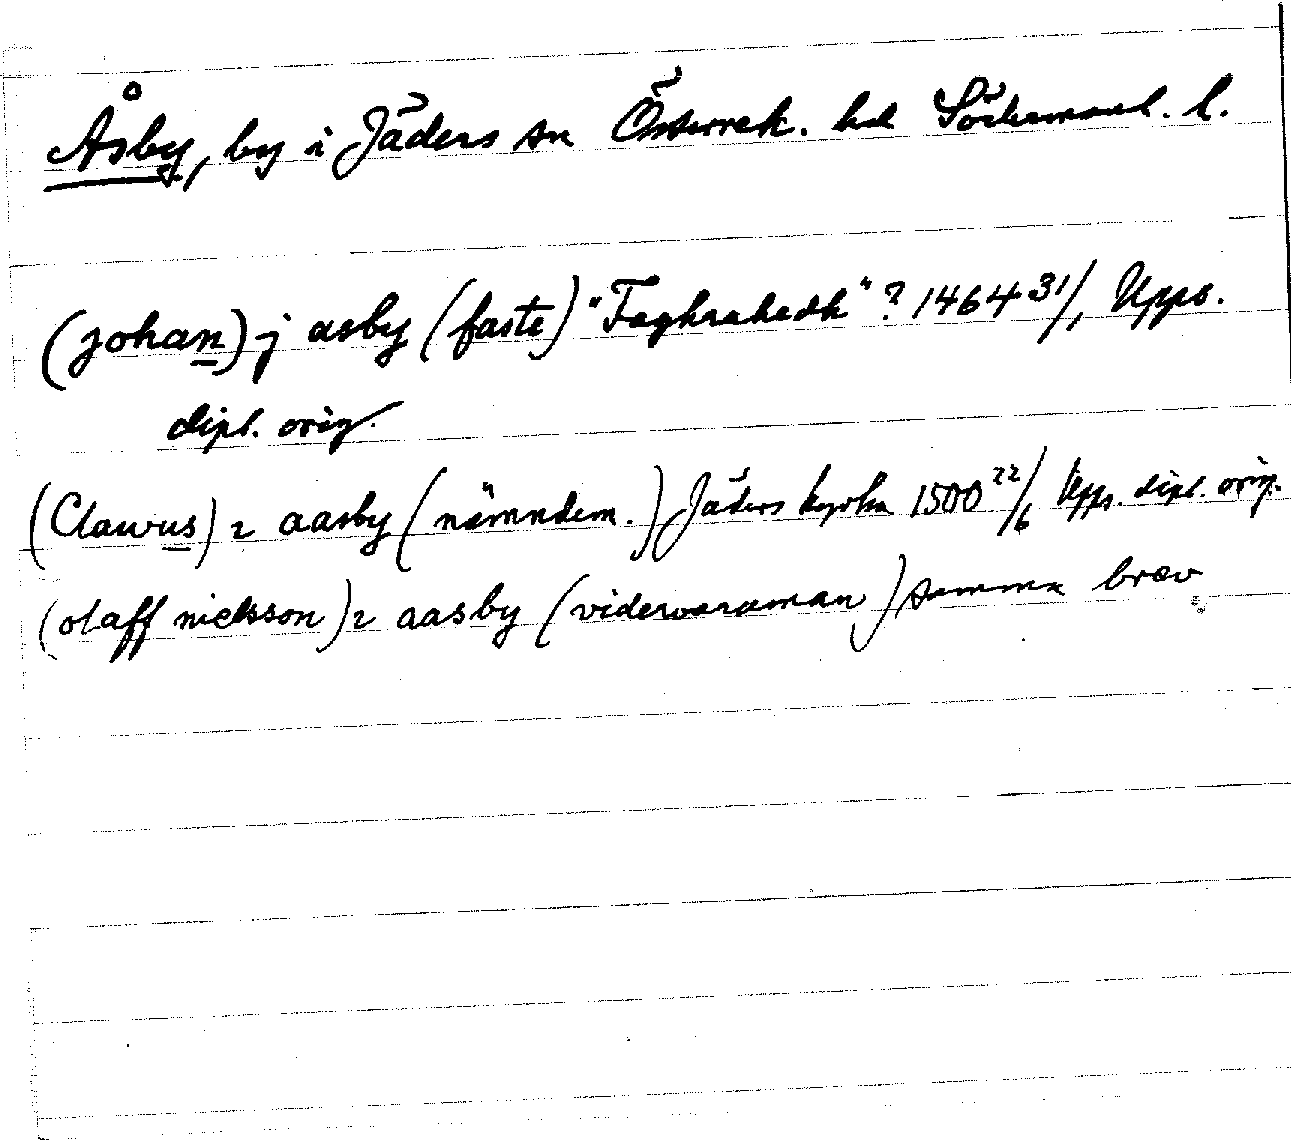 Åsby, by i Jäders sn Österrek. hd Södermanl. l.
(johan) j asby (faste) "Faghrahedh" ? 1464 31/1 Upps.
dipl. orig.
(Clawus) i aasby (nämndem.) Jäders kyrka 1500 22/6 Upps. dipl. orig.
(olaff nielsson) i aasby (vidervaraman) samma brev